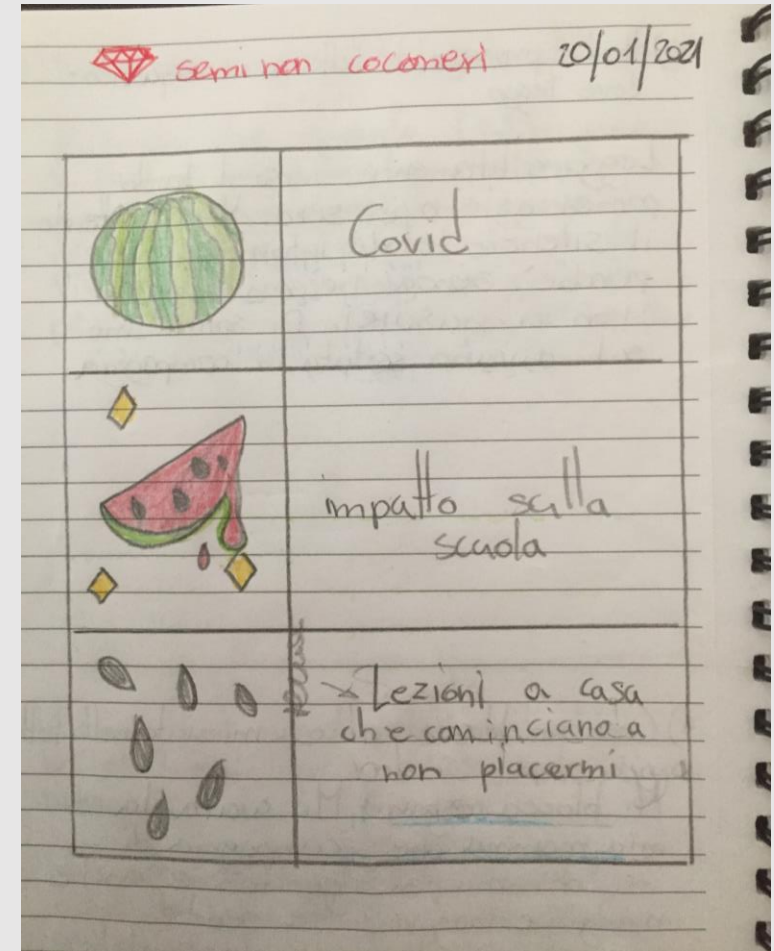 semi non cocomeri 20/01/2021
Covid
impatto sulla
scuola
Lezioni a casa
che cominciano a
non piacermi